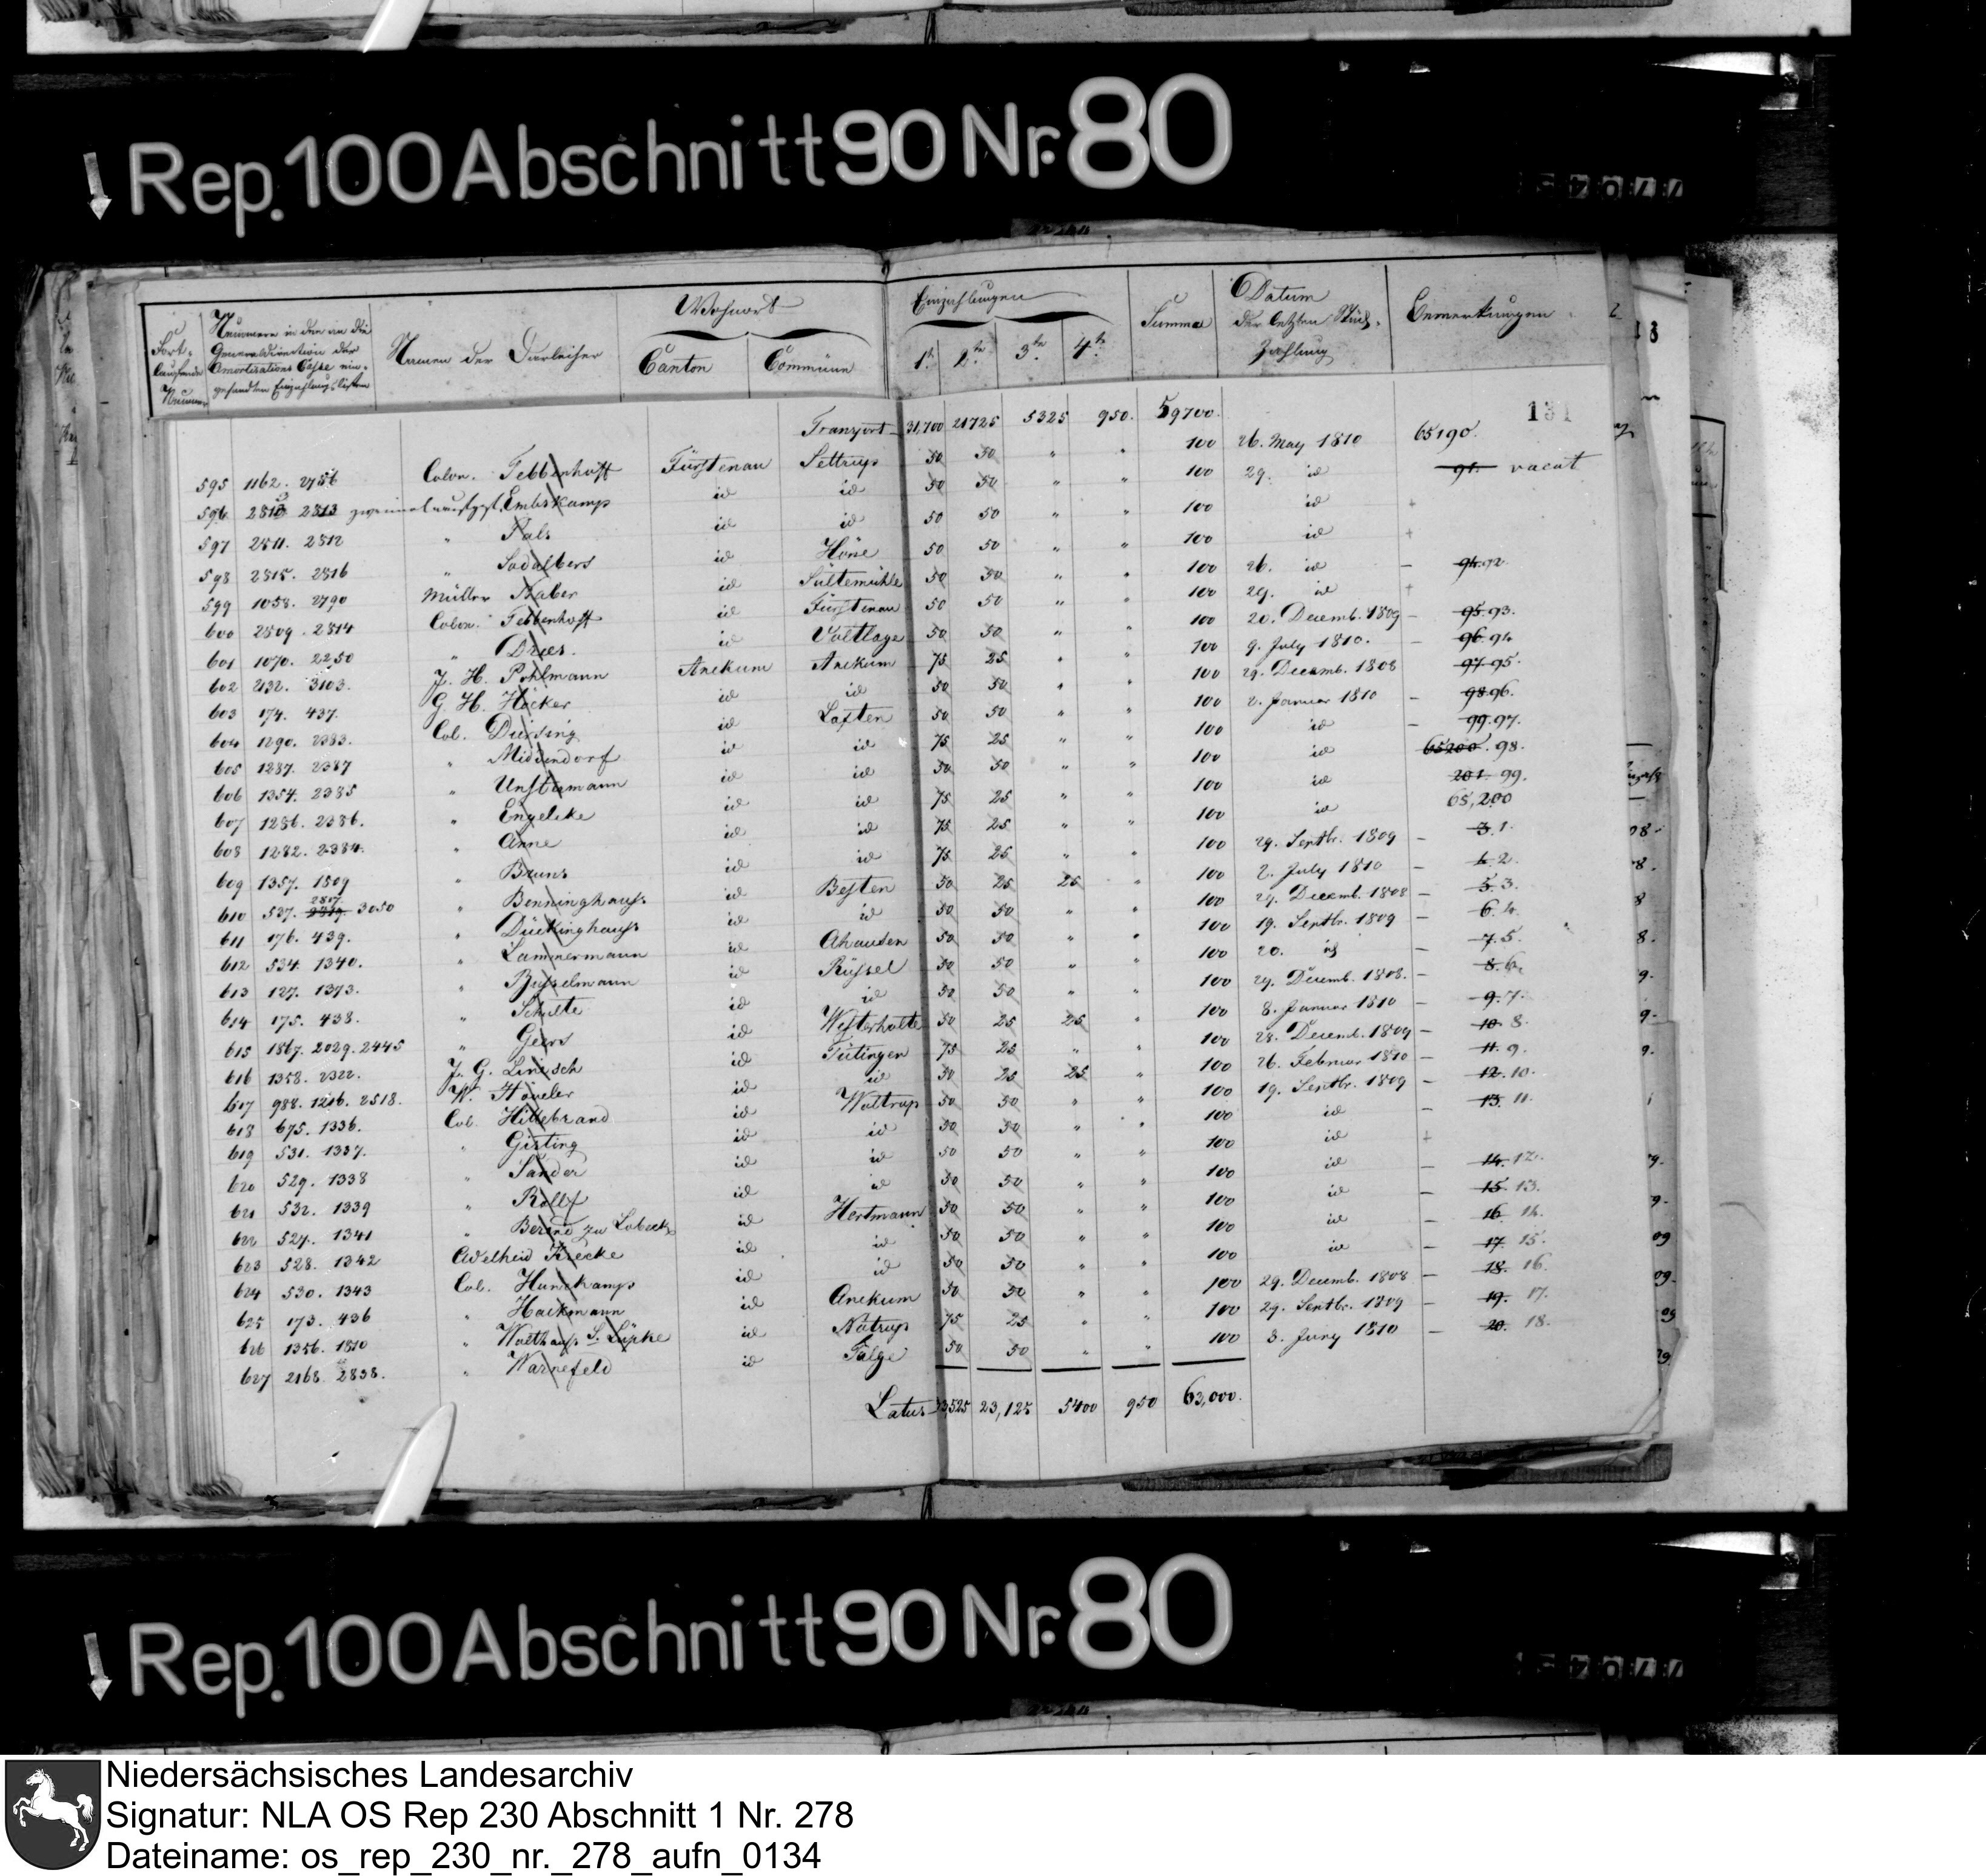 ↓ Rep. 100 Abschnitt 90 Nr. 80
Fort-laufende Nummer | Nummern in den an die Generaldirection der Amortisations Casse ein-gesandten Einzahlungslisten | Namen der Darleiher | Wohnort | Einzahlungen | Summa | Datum der letzten Rück-Zahlung | Bemerkungen
Canton | Commüne | 1te | 2te | 3te | 4te
131
Transport 31,700 21725 5325 950. 59700.
595 1162. 2756 Colon. Tebbenhoff Fürstenau Settrup 50 50 " " 100 26. May 1810 65190.
596 2813 zweimal aufgef. Embskamp id id 50 50 " " 100 29. id 91. vacat
597 2511. 2812 " Pals id id 50 50 " " 100 id +
598 2815. 2816 " Sadelbers id Höne 50 50 " " 100 id +
599 1058. 2790 Müller Raber id Sültemühle 50 50 " " 100 26. id – 92.
600 2809. 2814 Colon. Tebbenhoff id Fürstenau 50 50 " " 100 29. id +
601 1070. 2250 " Drees. id Voltlage 50 50 " " 100 20. Decemb. 1809 – 95. 93.
602 2132. 3103. J. H. Pohlmann Anckum Anckum 75 25 " " 100 9. July 1810. – 96. 94
603 174. 437. G. H. Höcker id id 50 50 " " 100 29. Decemb. 1808 97. 95.
604 1290. 2383. Col. Dürsing id Laxten 50 50 " " 100 2. Januar 1810 – 98. 96.
605 1287. 2387 " Middendorf id id 75 25 " " 100 id – 99. 97.
606 1354. 2385 " Unstermann id id 50 50 " " 100 id 65200. 98.
607 1286. 2386. " Engelcke id id 75 25 " " 100 id 201. 99.
608 1282. 2384. " Anne id id 75 25 " " 100 id 65,200
609 1357. 1809 " Bruns id id 75 25 " " 100 29. Septbr. 1809 – 3. 1.
610 537. 2807. 3050 " Benninghaus id Besten 50 25 25 " 100 2. July 1810 – 2.
611 176. 439. " Dückinghaus id id 50 50 " " 100 29. Decemb. 1808 – 5. 3.
612 534. 1340. " Lammermann id Ahausen 50 50 " " 100 19. Septbr. 1809 – 6. 4.
613 127. 1373. " Rüsselmann id Rüssel 50 50 " " 100 20. id – 7. 5.
614 175. 438. " Schulte id id 50 50 " " 100 29. Decemb. 1808. – 8. 6.
615 1867. 2029. 2445 " Geers id Westerholte 50 25 25 " 100 8. Januar 1810 – 9. 7.
616 1358. 2322. J. G. Linesch id Tütingen 75 25 " " 100 28. Decemb. 1809 – 10. 8.
617 988. 1216. 2518. W. Höveler id id 50 25 25 " 100 26. Februar 1810 – 11. 9.
618 675. 1336. Col. Hillebrand id Woltrup 50 50 " " 100 19. Septbr. 1809 – 12. 10.
619 531. 1337. " Girting id id 50 50 " " 100 id – 13. 11.
620 529. 1338 " Sander id id 50 50 " " 100 id +
621 532. 1339 " Rolff id id 50 50 " " 100 id – 14. 12.
622 527. 1341 " Berend zu Lobeck id Hertmann 50 50 " " 100 id – 15. 13.
623 528. 1342 Adelheid Krecke id id 50 50 " " 100 id – 16. 14.
624 530. 1343 Col. Hunekamp id id 50 50 " " 100 id – 17. 15.
625 173. 436 " Hackmann id Anckum 50 50 " " 100 29. Decemb. 1808 – 18. 16.
626 1356. 1810 " Walthaus S. Lüpke id Natrup 75 25 " " 100 29. Septbr. 1809 – 19. 17.
627 2168. 2838. " Warnefeld id Talge 50 50 " " 100 3. Juny 1810 – 20. 18.
Latus 33,525 23,125 5400 950 63,000.
↓ Rep. 100 Abschnitt 90 Nr. 80
Niedersächsisches Landesarchiv
Signatur: NLA OS Rep 230 Abschnitt 1 Nr. 278
Dateiname: os_rep_230_nr._278_aufn_0134